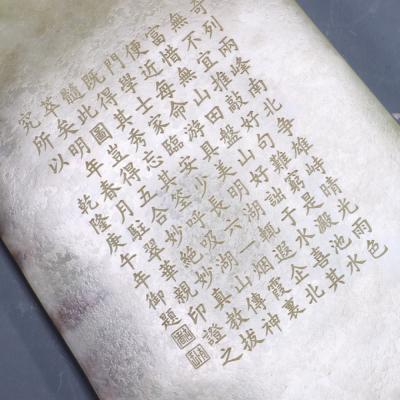 奇列兩峰南北爭雄峙晴光雨色
無不宜推敲好句難窮是澱池水
富惜無山田盤山好訕于水喜其
便近每命游具美明湖覼遐企北
門學士家臨安少長六一烟霞裏
既得其考忘其筌呼吸湖山傳神
髓此圖豈得五合妙絕妙真教拔
萃矣明年春月駐翠華親印證之
究所以
乾隆庚午年御題